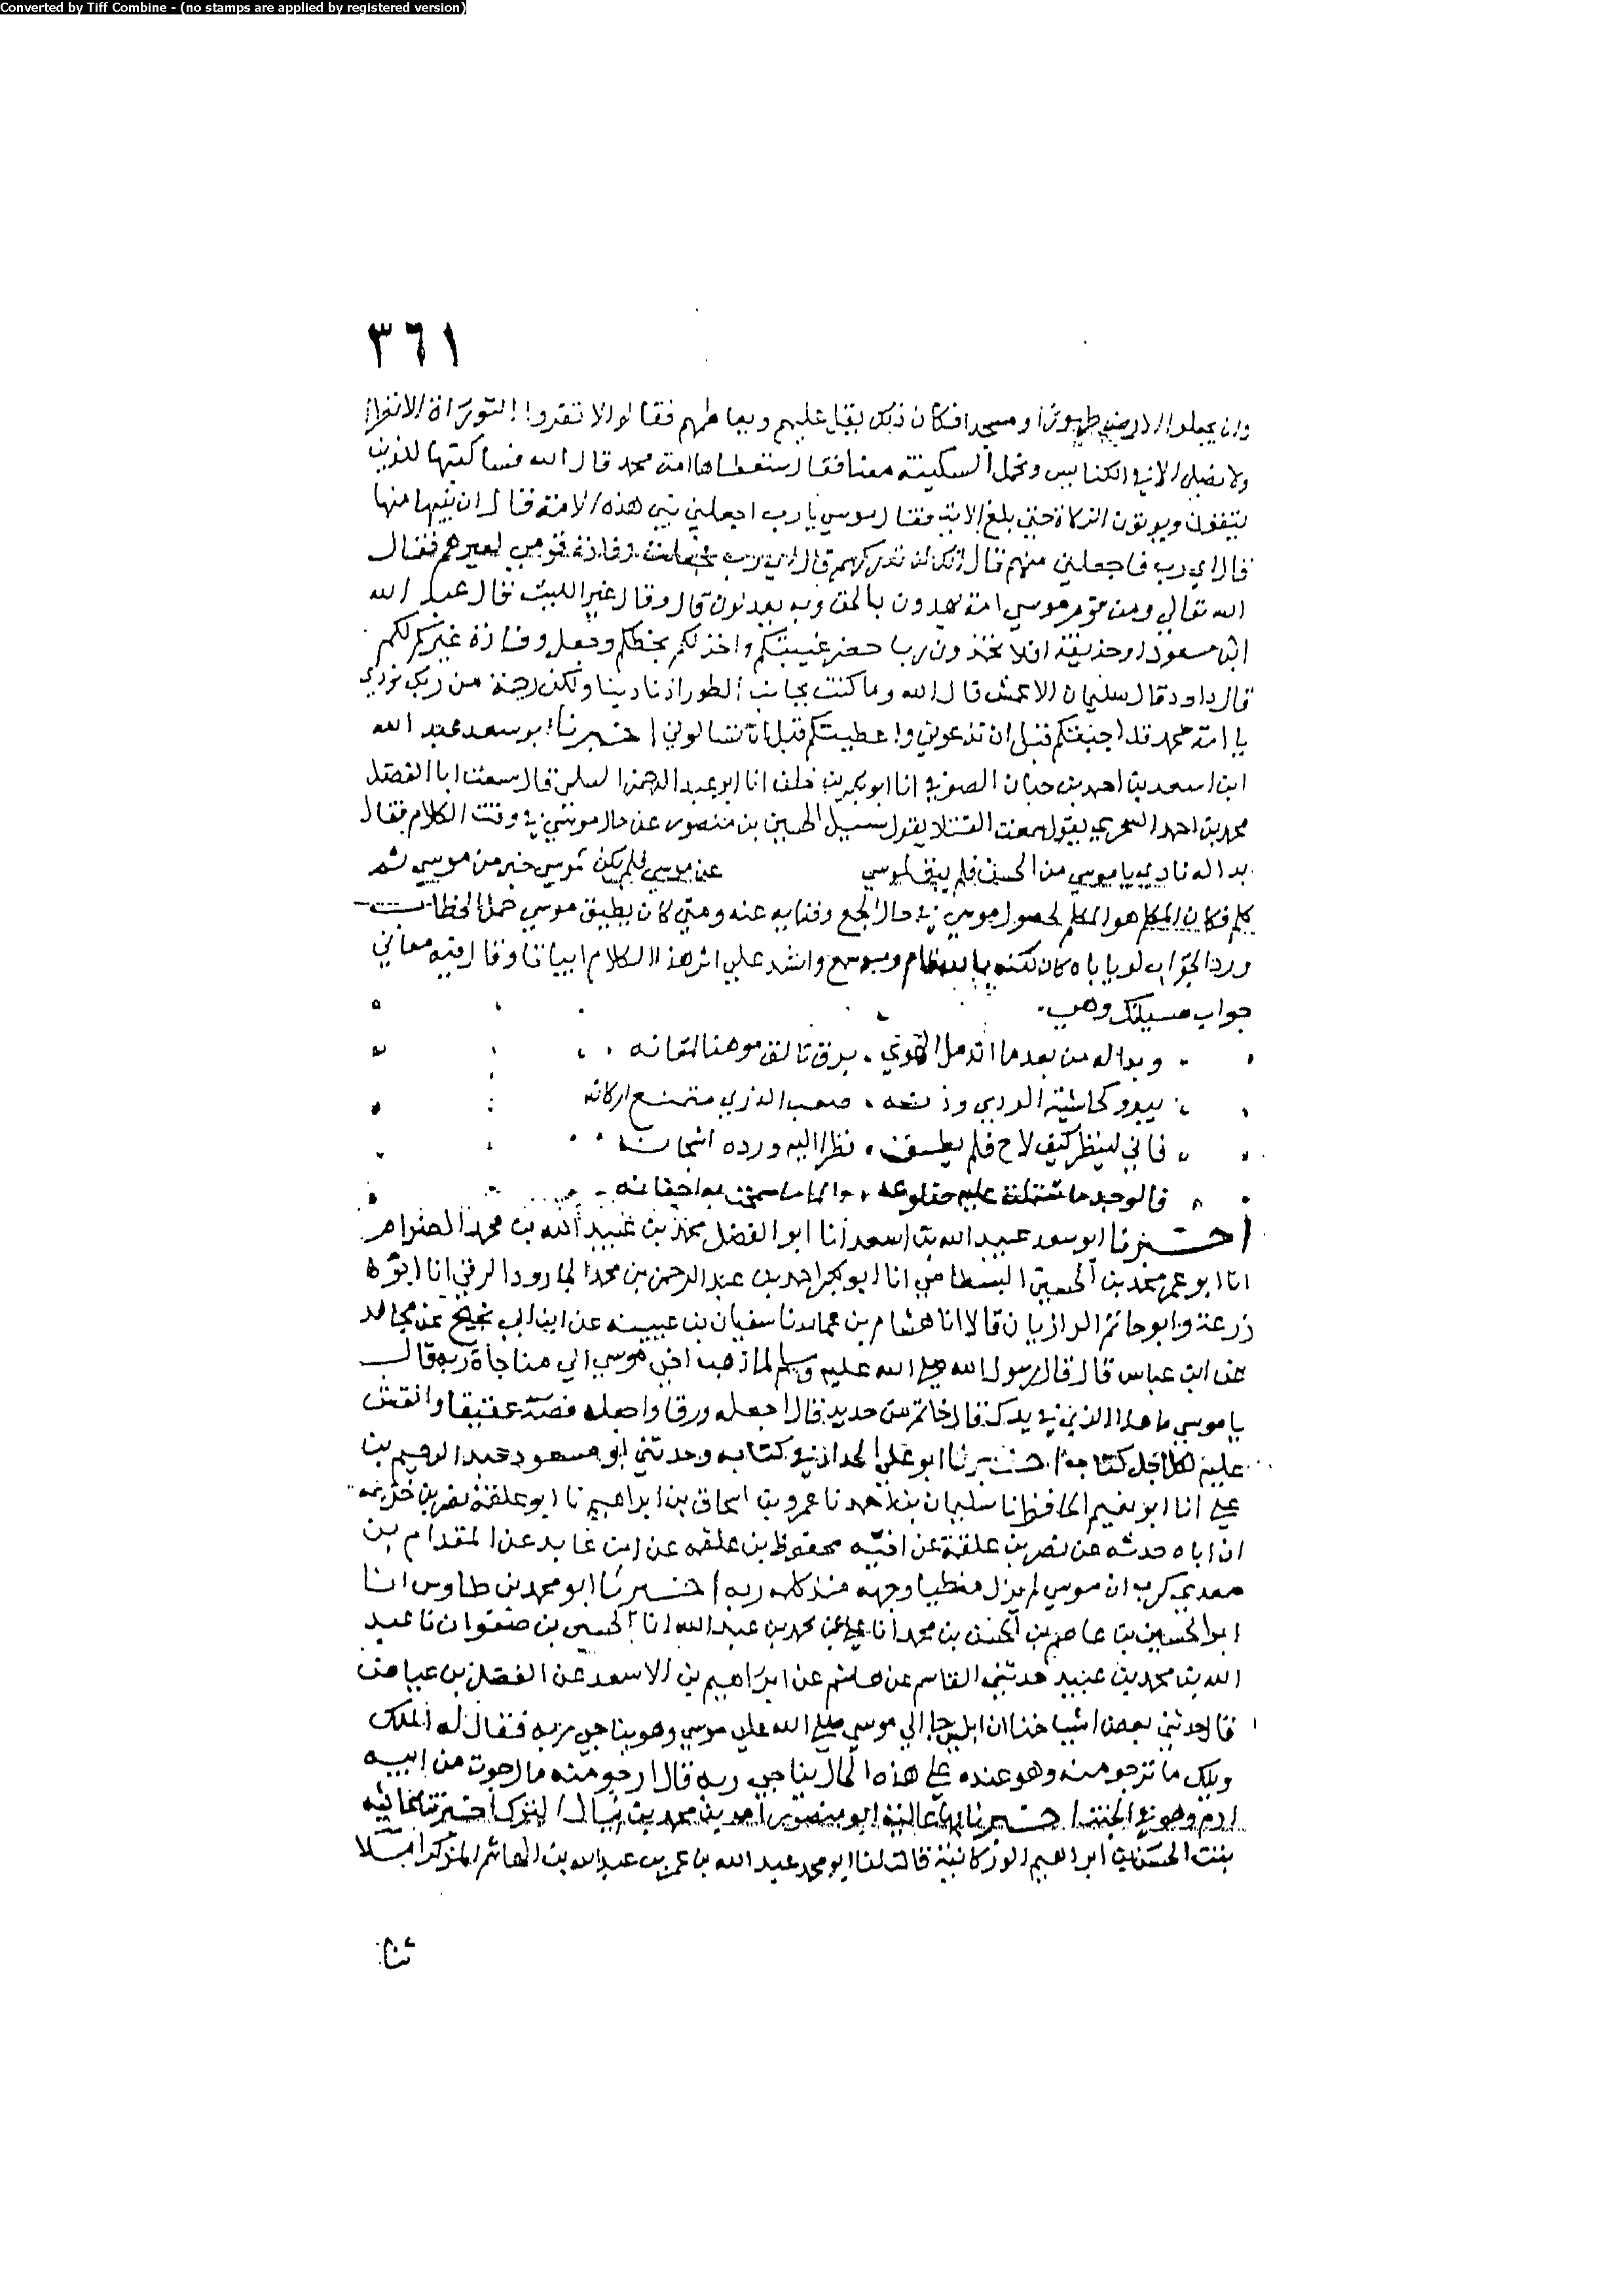 Converted by Tiff Combine - (no stamps are applied by registered version)
٣٦١
وان يجعلوا الارض طهورا ومسجدا فكان ذلك يقبل عليهم فقالوا لا تقروا التوراة الا نظرا
ولا نصلي الا في الكنايس وتحمل السكينة معنا فقال ستعطاها امة محمد قال الله فسأكتبها للذين
يتقون ويوتون الزكاة حتى بلغ الاية فقال موسى يا رب اجعلني نبي هذه الامة فقال ان نبيها منها
قال اي رب فاجعلني منهم قال انك لن تدركهم قال اي رب جعلت وفادة قومي لغيرهم فقال
الله تعالى ومن قوم موسى امة يهدون بالحق وبه يعدلون قال وقال غير الليث فقال عبد الله
ابن مسعود او حذيفة افلا تحمدون ربا حضر غيبتكم واخذ لكم بحظكم وجعل وفادة غيركم لكم
قال داود قال سليمان الاعمش قال الله وما كنت بجانب الطور اذ نادينا ولكن رحمة من ربك نودي
يا امة محمد قد اجبتكم قبل ان تدعوني واعطيتكم قبل ان تسالوني اخبرنا ابو سعد عبد الله
ابن اسعد بن احمد بن حبان الصوفي انا ابو بكر بن خلف انا ابو عبد الرحمن السلمي قال سمعت ابا الفضل
محمد بن احمد يقول سمعت يقول سيل الحسين بن منصور عن حال موسى في وقت الكلام فقال
بدا له نادي يا موسى من الحق فلم يبق لموسى عن موسى فلم يكن لموسى خبر من موسى ثم
كلم فكان المكلم هو المكلم لحصول موسى في حال الجمع وفنايه عنه ومتى كان يطيق موسى حمل الخطاب
ورد الجواب لو باياه كان لكنه بالله قام وبه سمع وانشد على اثر هذا الكلام ابياتا وقال فيه معاني
جواب مسيلتك وهي
وبدا له من بعد ما اندمل الهوى برق تالق موهنا لمعانه
يبدو كحاشية الردي ودونه صعب الذري متمنع اركانه
فاتى لينظر كيف لاح فلم يطق نظرا اليه ورده اشجانه
فالوجد ما اشتملت عليه ضلوعه والما ما سمحت به اجفانه
اخبرنا ابو سعد عبد الله بن اسعد انا ابو الفضل محمد بن عبيد الله بن محمد الصرام
انا ابو عمر محمد بن الحسين البسطامي انا ابو بكر احمد بن عبد الرحمن بن محمد الجارودي الرقي انا ابو
زرعة وابو حاتم الرازيان قالا انا هشام بن عمار نا سفيان بن عيينه عن ابن ابي نجيح عن مجاهد
عن ابن عباس قال قال رسول الله صلى الله عليه وسلم لما ذهب اخي موسى الى مناجاة ربه قال
يا موسى ما هذا الذي في يدك قال خاتم من حديد قال اجعله ورقا واجعله فصه عقيقا وانقش
عليه لكل اجل كتاب اخبرنا ابو علي الحداد في كتابه وحدثني ابو مسعود عبد الرحيم بن
علي انا ابو نعيم الحافظ نا سليمان بن احمد نا عمرو بن اسحاق بن ابراهيم نا ابو علقمة نصر بن خزيمه
ان اباه حدثه عن نصر بن علقمة عن اخيه محفوظ بن علقمه عن ابن عايد عن المقدام بن
معدي كرب ان موسى لم يزل مغطيا وجهه منذ كلمه ربه اخبرنا ابو محمد بن طاوس انا
ابو الحسين بن عاصم بن الحسن بن محمد انا علي بن محمد بن عبد الله انا الحسين بن صفوان نا عبد
الله بن محمد بن عبيد حدثني القاسم بن هاشم عن ابراهيم بن الاسعد عن الفضل بن عياض
قال حدثني بعض اشياخنا ان ابليس جا الى موسى صلى الله على موسى وهو يناجي ربه فقال له الملك
ويلك ما ترجو منه وهو عنده على هذه الحال يناجي ربه قال ارجو منه ما رجوت من ابيه
ادم وهو في الجنة اخبرنا ابو منصور احمد بن محمد بن ينال الترك اخبرتنا عائشه
بنت الحسن بن ابراهيم الوركانية قالت لنا ابو محمد عبد الله بن عمر بن عبد الله بن الهاثم المذكر املا
ثنا